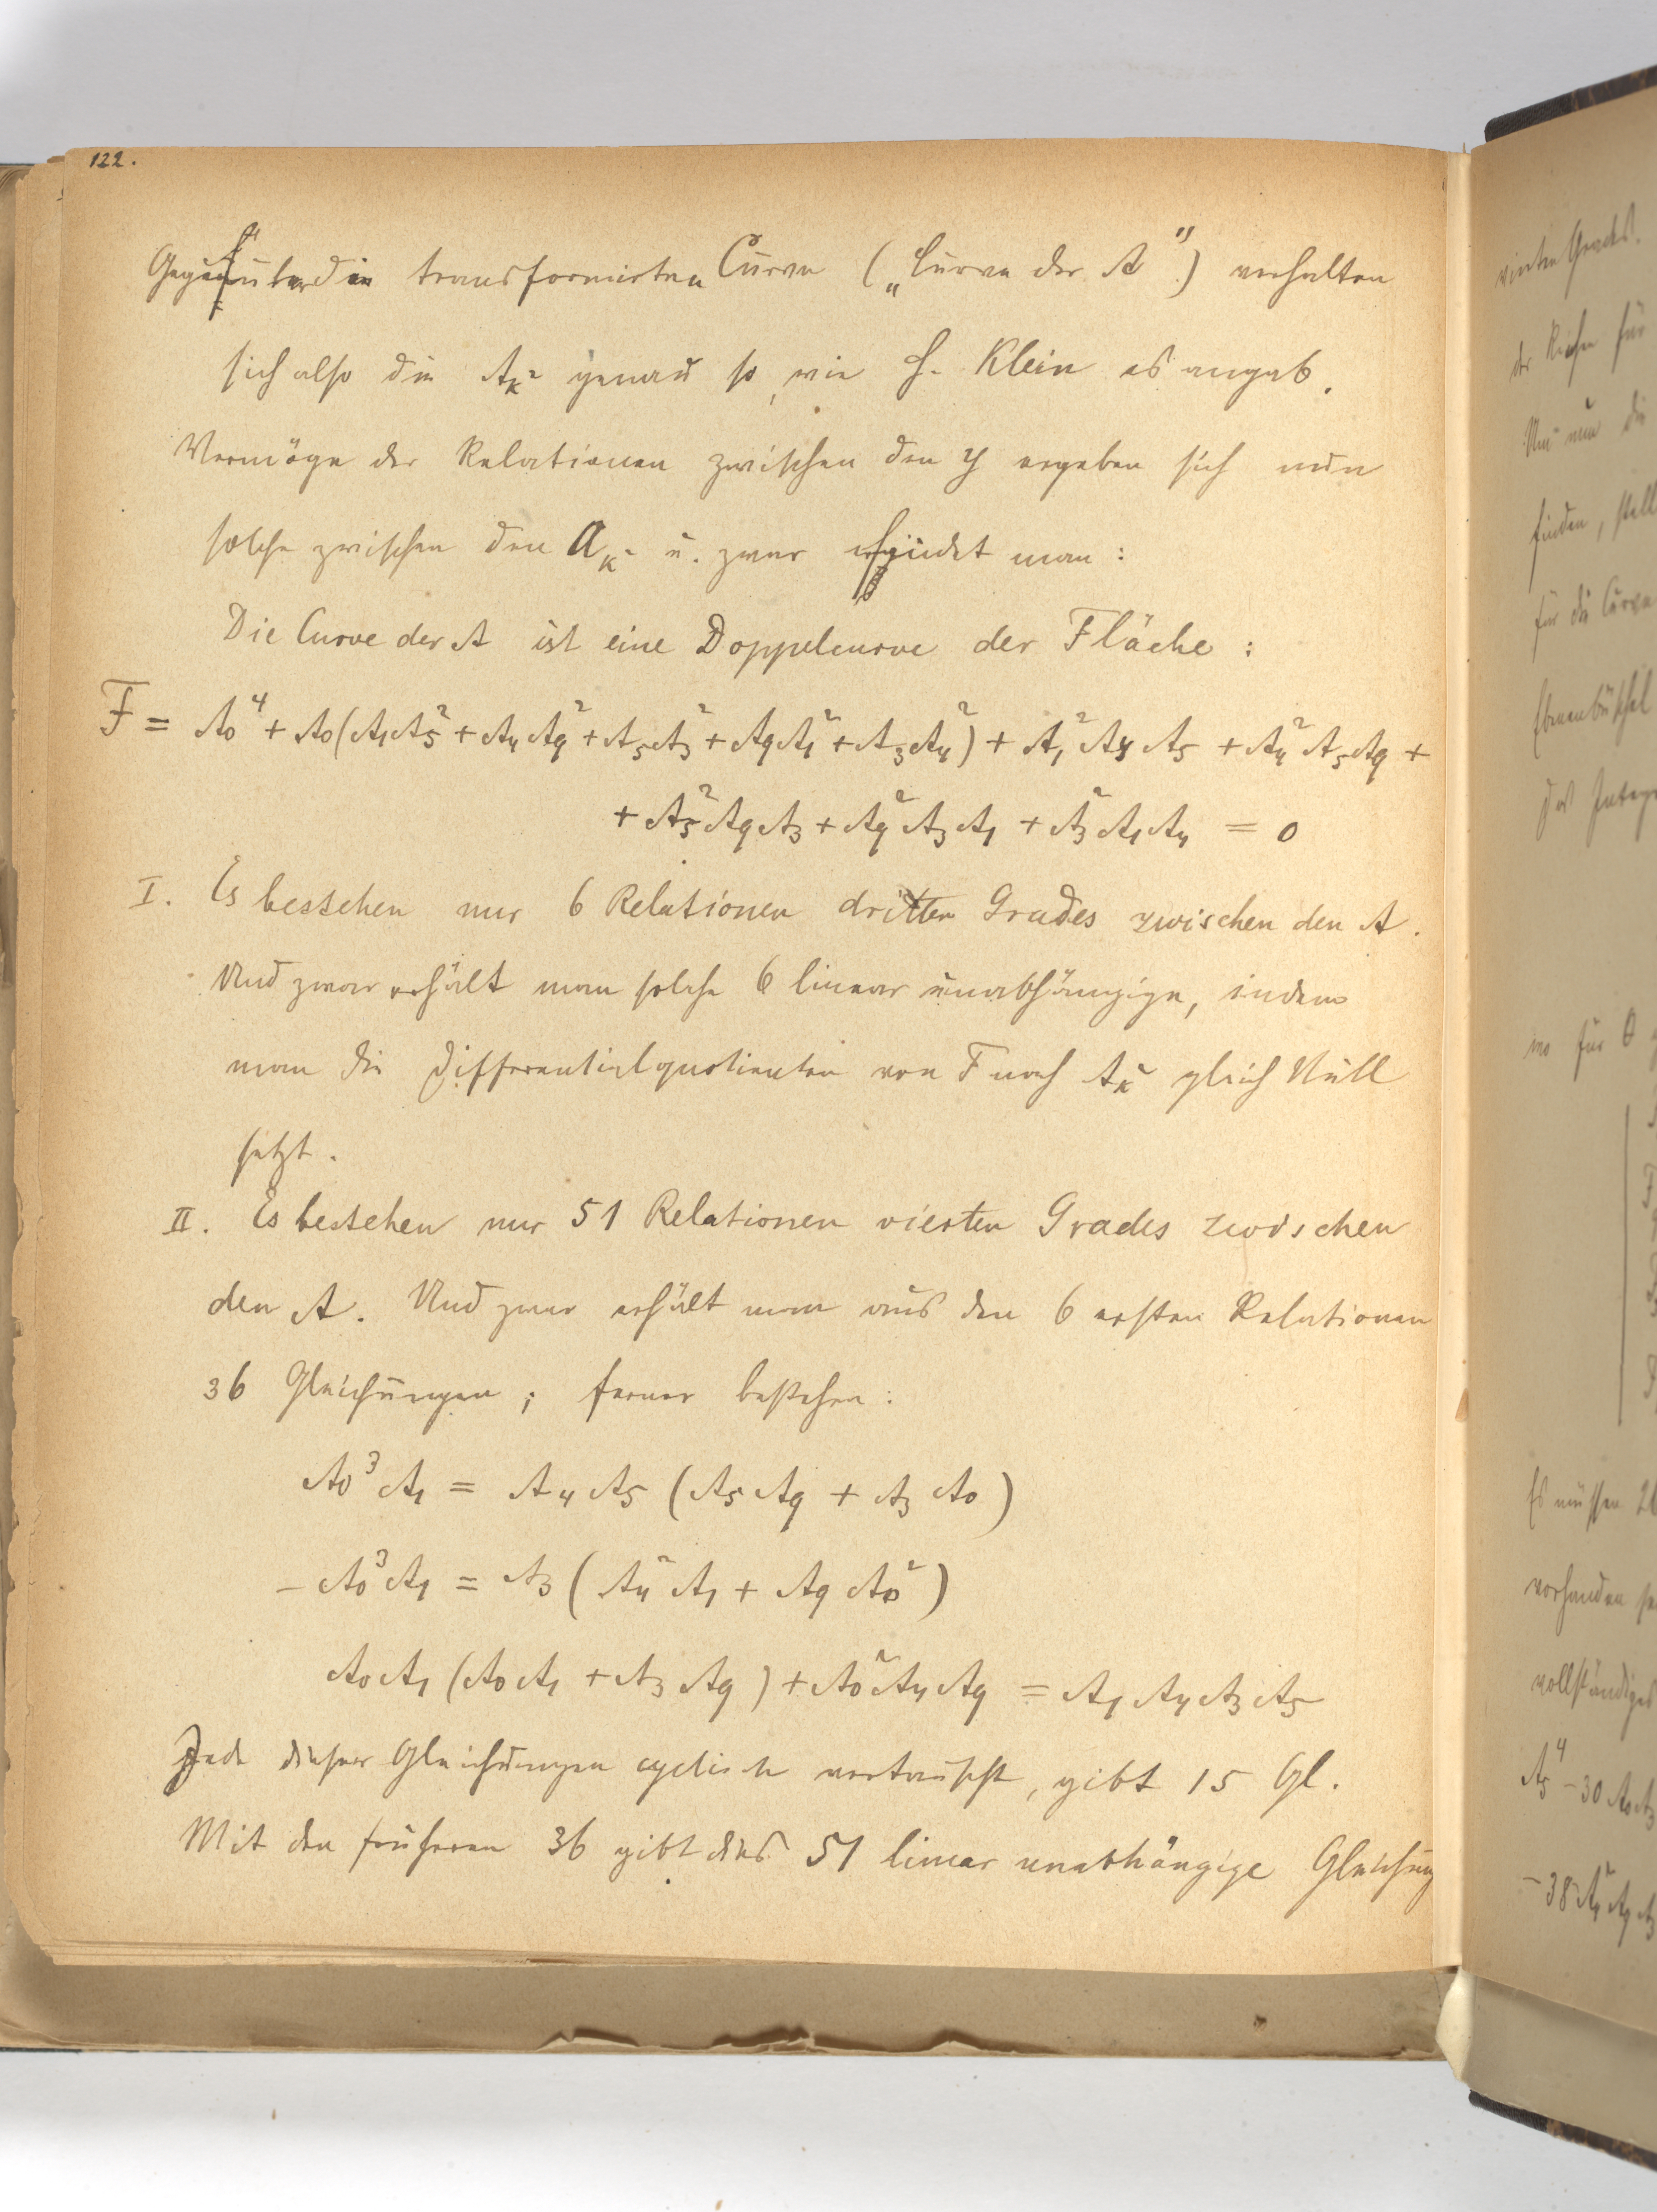 122.
Gegenüber dieser transformirten Curve („Curve der A“) verhalten
sich also die A_κ² genau so, wie H. Klein es angab.
Vermöge der Relationen zwischen den y ergeben sich nun
solche zwischen den A_κ² u. zwar findet man:
Die Curve der A ist eine Doppelcurve der Fläche:
F = A₀⁴ + A₀(A₁A₅² + A₄A₉² + A₅A₃² + A₉A₁² + A₃A₄²) + A₁²A₄A₅ + A₄²A₅A₉ +
+ A₅²A₉A₃ + A₉²A₃A₁ + A₃²A₁A₄ = 0
I. Es bestehen nur 6 Relationen dritten Grades zwischen den A.
Und zwar erhält man solche 6 linear unabhängige, indem
man die Differentialquotienten von F nach A_κ² gleich Null
setzt.
II. Es bestehen nur 51 Relationen vierten Grades zwischen
den A. Und zwar erhält man aus den 6 ersten Relationen
36 Gleichungen; ferner bestehen:
A₀³A₁ = A₄A₅(A₅A₉ + A₃A₀)
− A₀³A₁ = A₃(A₄²A₁ + A₉A₀²)
A₀A₁(A₀A₁ + A₃A₉) + A₀²A₄A₉ = A₁A₄A₃A₅
Jede dieser Gleichungen cyclisch vertauscht, gibt 15 Gl.
Mit den früheren 36 gibt dies 51 linear unabhängige Gleichung
vierten Grades.
der Reihe für
Um nun die
finden, stell
für die Curve
Ebenenbüschel
das Integr
wo für θ
Es müssen 26
vorhanden se
vollständiges
A₅⁴ − 30 A₀A₃
− 38 A₁²A₉A₃